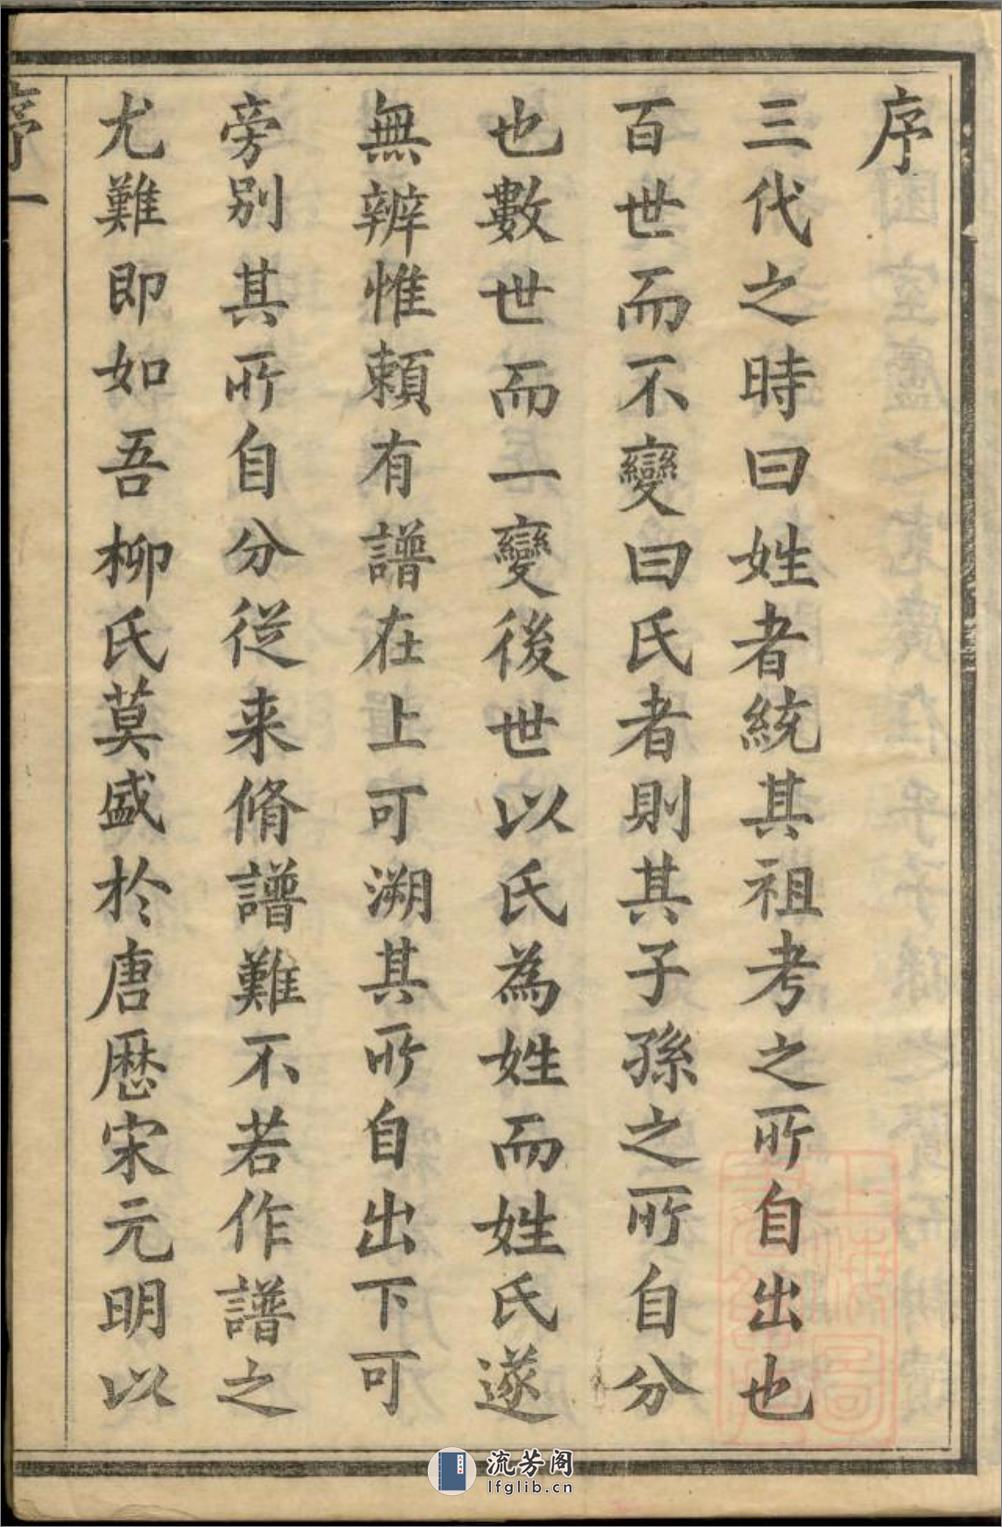 序
三代之時曰姓者統其祖考之所自出也
百世而不變曰氏者則其子孫之所自分
也數世而一變後世以氏為姓而姓氏遂
無辨惟頼有譜在上可溯其所自出下可
旁別其所自分従来脩譜難不若作譜之
尤難即如吾柳氏莫盛於唐歴宋元明以
序一
流芳阁
lfglib.cn